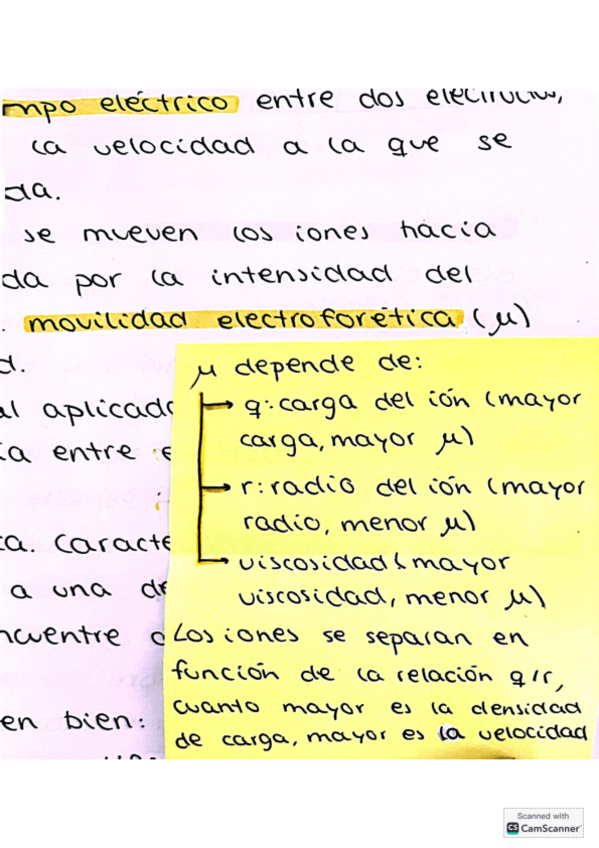 mpo eléctrico entre dos electrodos,
la velocidad a la que se
da.
se mueven los iones hacia
da por la intensidad del
. movilidad electroforética (μ)
d.
μ depende de:
q: carga del ión (mayor
al aplicado
carga, mayor μ)
ia entre e
r: radio del ión (mayor
radio, menor μ)
ca. Caracte
viscosidad (mayor
a una de
viscosidad, menor μ)
ncuentre
Los iones se separan en
función de la relación q/r,
cuanto mayor es la densidad
en bien:
de carga, mayor es la velocidad
Scanned with
CS CamScanner